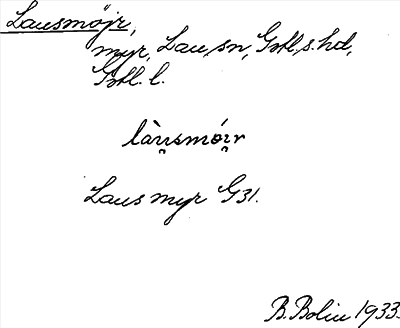 Lausmöjr,
myr, Lau, sn, Gotl. s. hd,
Gotl. l.
làu̯smói̯r
Laus myr G31.
B. Bolin 1933.